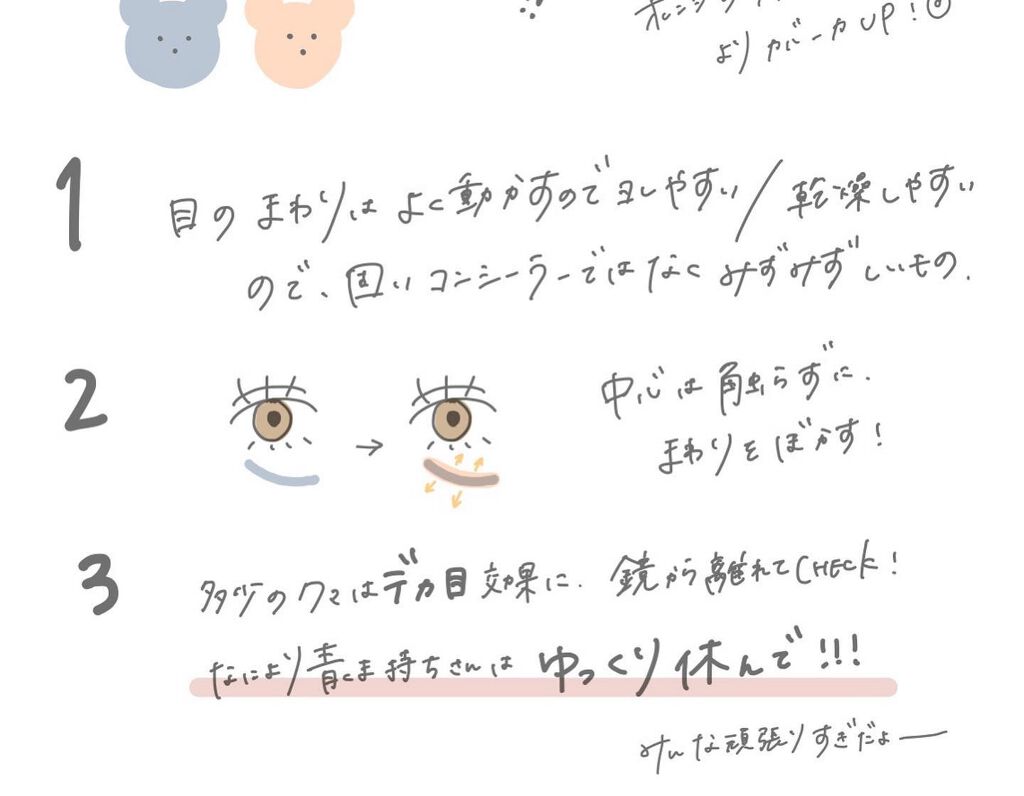 よりカバー力UP!
1 目のまわりはよく動かすのでヨレやすい/乾燥しやすい
ので、固いコンシーラーではなくみずみずしいもの.
2 中心は触らずに.
まわりをぼかす!
3 多少のクマはデカ目効果に.鏡から離れてCHECK!
なにより青くま持ちさんはゆっくり休んで!!!
みんな頑張りすぎだよー